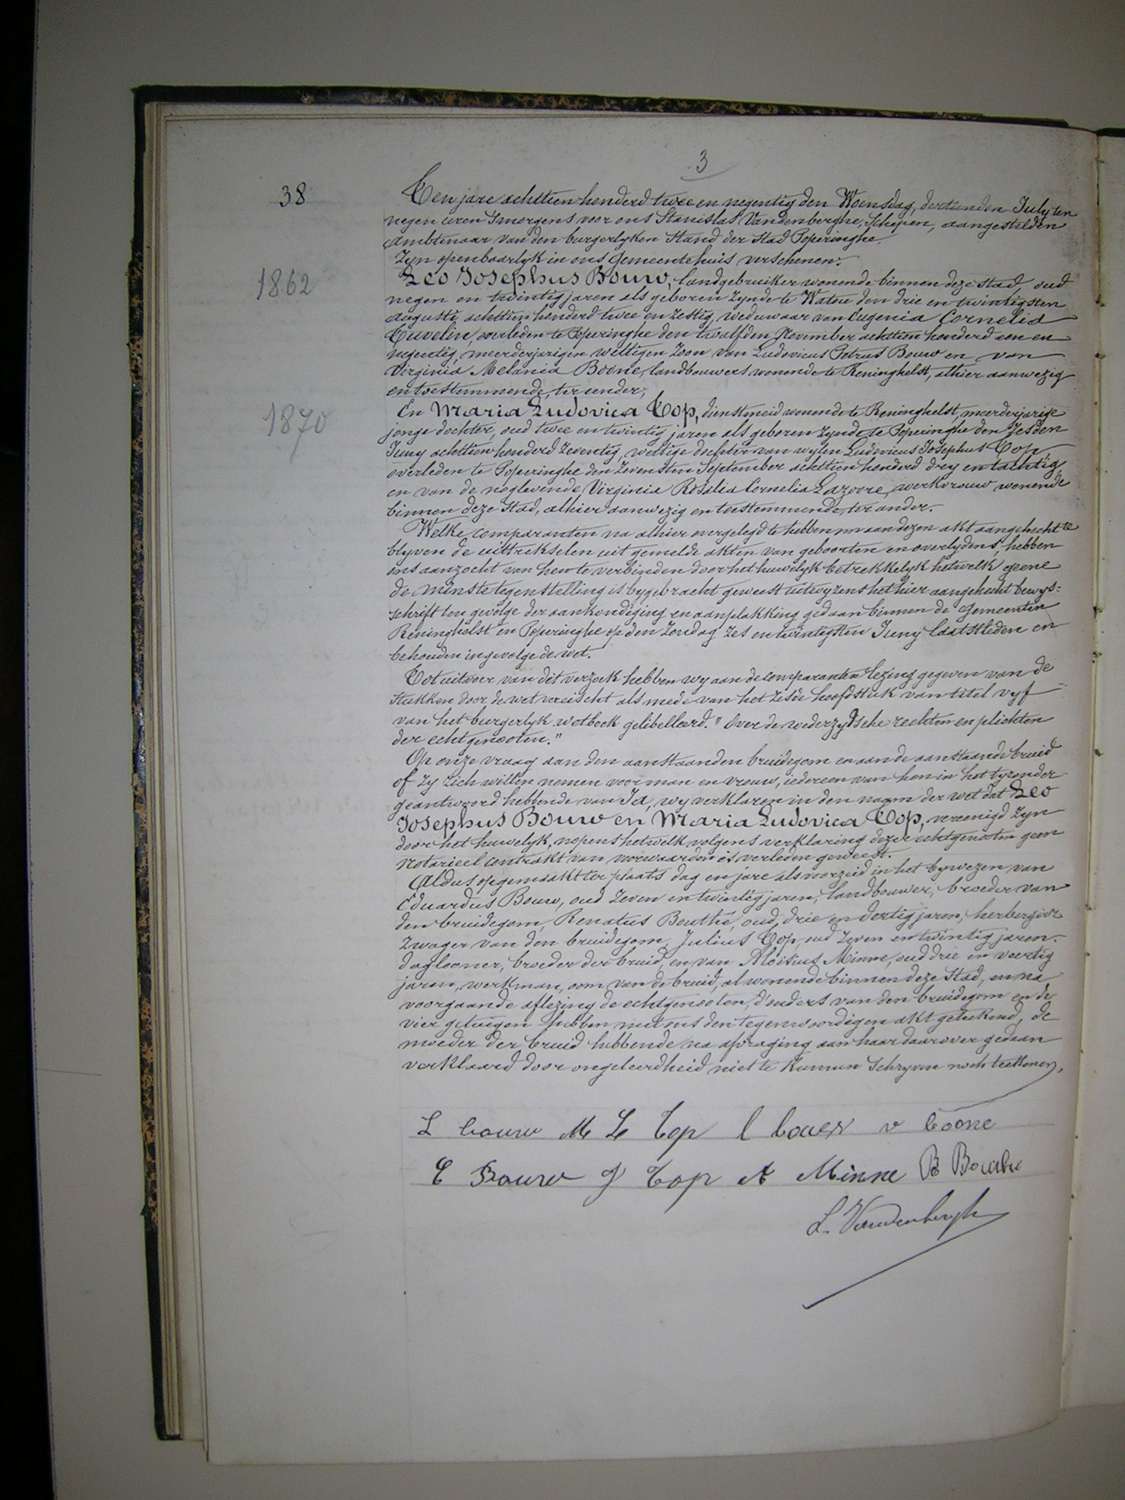 3
38
Ten jare achttien honderd twee en negentig den Woensdag, dertienden July ten
negen uren smorgens voor ons Stanislas Vandenberghe, Schepen, aangestelden
Ambtenaar van den burgerlyken Stand der Stad Poperinghe.
Zyn openbaarlyk in ons Gemeentehuis verschenen:
1862
Leo Josephus Bouw, landgebruiker wonende binnen deze stad, oud
negen en twintig jaren als geboren zynde te Watou den drie en twintigsten
Augusti achttien honderd twee en zestig, weduwaar van Eugenia Cornelia
Cuvelier, overleden te Poperinghe den twaalfden November achttien honderd een en
negentig, meerderjarigen wettigen zoon van Ludovicus Petrus Bouw en van
Virginia Melania Boone, landbouwers wonende te Reninghelst, alhier aanwezig
en toestemmende, ter eender;
1870
En Maria Ludovica Top, dienstmeid wonende te Reninghelst, meerderjarige
jonge dochter, oud twee en twintig jaren als geboren zynde te Poperinghe den zesden
Juny achttien honderd zeventig, wettige dochter van wylen Ludovicus Josephus Top
overleden te Poperinghe den zevensten September achttien honderd dry en tachtig
en van de noglevende Virginia Rosalia Cornelia Lazoore, werkvrouw wonende
binnen deze Stad, alhier aanwezig en toestemmende, ter ander.
Welke comparanten na alhier overgelegd te hebben om aan dezen akt aangehecht te
blyven de uittrekselen uit gemelde akten van geboorten en overlydens, hebben
ons aanzocht van hen te verbinden door het huwelyk betrekkelyk hetwelk geene
de minste tegenstelling is bygebracht geweest uitwyzens het hier aangehecht bewys-
schrift ten gevolge der aankondiging en aanplakking gedaan binnen de Gemeenten
Reninghelst en Poperinghe op den Zondag zes en twintigsten Juny laatstleden en
behouden ingevolge de wet.
Tot uitvoer van dit verzoek hebben wy aan de comparanten lezing gegeven van de
stukken door de wet vereischt als mede van het zesde hoofdstuk van titel vyf
van het burgerlyk wetboek gelibelleerd: "Over de wederzydsche rechten en plichten
der echtgenooten."
Op onze vraag aan den aanstaanden bruidegom en aan de aanstaande bruid
of zy zich willen nemen voor man en vrouw, iedereen van hen in het byzonder
geantwoord hebbende van Ja, wy verklaren in den naam der wet dat Leo
Josephus Bouw en Maria Ludovica Top, vereenigd zyn
door het huwelyk, nopens hetwelk volgens verklaring dezer echtgenooten geen
notarieel contrakt van voorwaarden is verleden geweest.
Aldus opgemaakt ter plaats dag en jare als voorzeid in het bywezen van
Eduardus Bouw, oud zeven en twintig jaren, landbouwer, broeder van
den bruidegom, Renatus Beuthe, oud drie en dertig jaren, herbergier
zwager van den bruidegom, Julius Top, oud zeven en twintig jaren,
daglooner, broeder der bruid, en van Aloisius Minne, oud drie en veertig
jaren, werkman, oom van de bruid, al wonende binnen deze Stad, en na
voorgaande aflezing de echtgenooten, d'ouders van den bruidegom en de
vier getuigen hebben met ons den tegenwoordigen akt geteekend, de
moeder der bruid hebbende na afvraging aan haar daarover gedaan
verklaard door ongeleerdheid niet te kunnen schryven noch teekenen.
L bouw M L Top l bouw v boone
E Bouw J Top A Minne R Beuthe
S. Vandenberghe